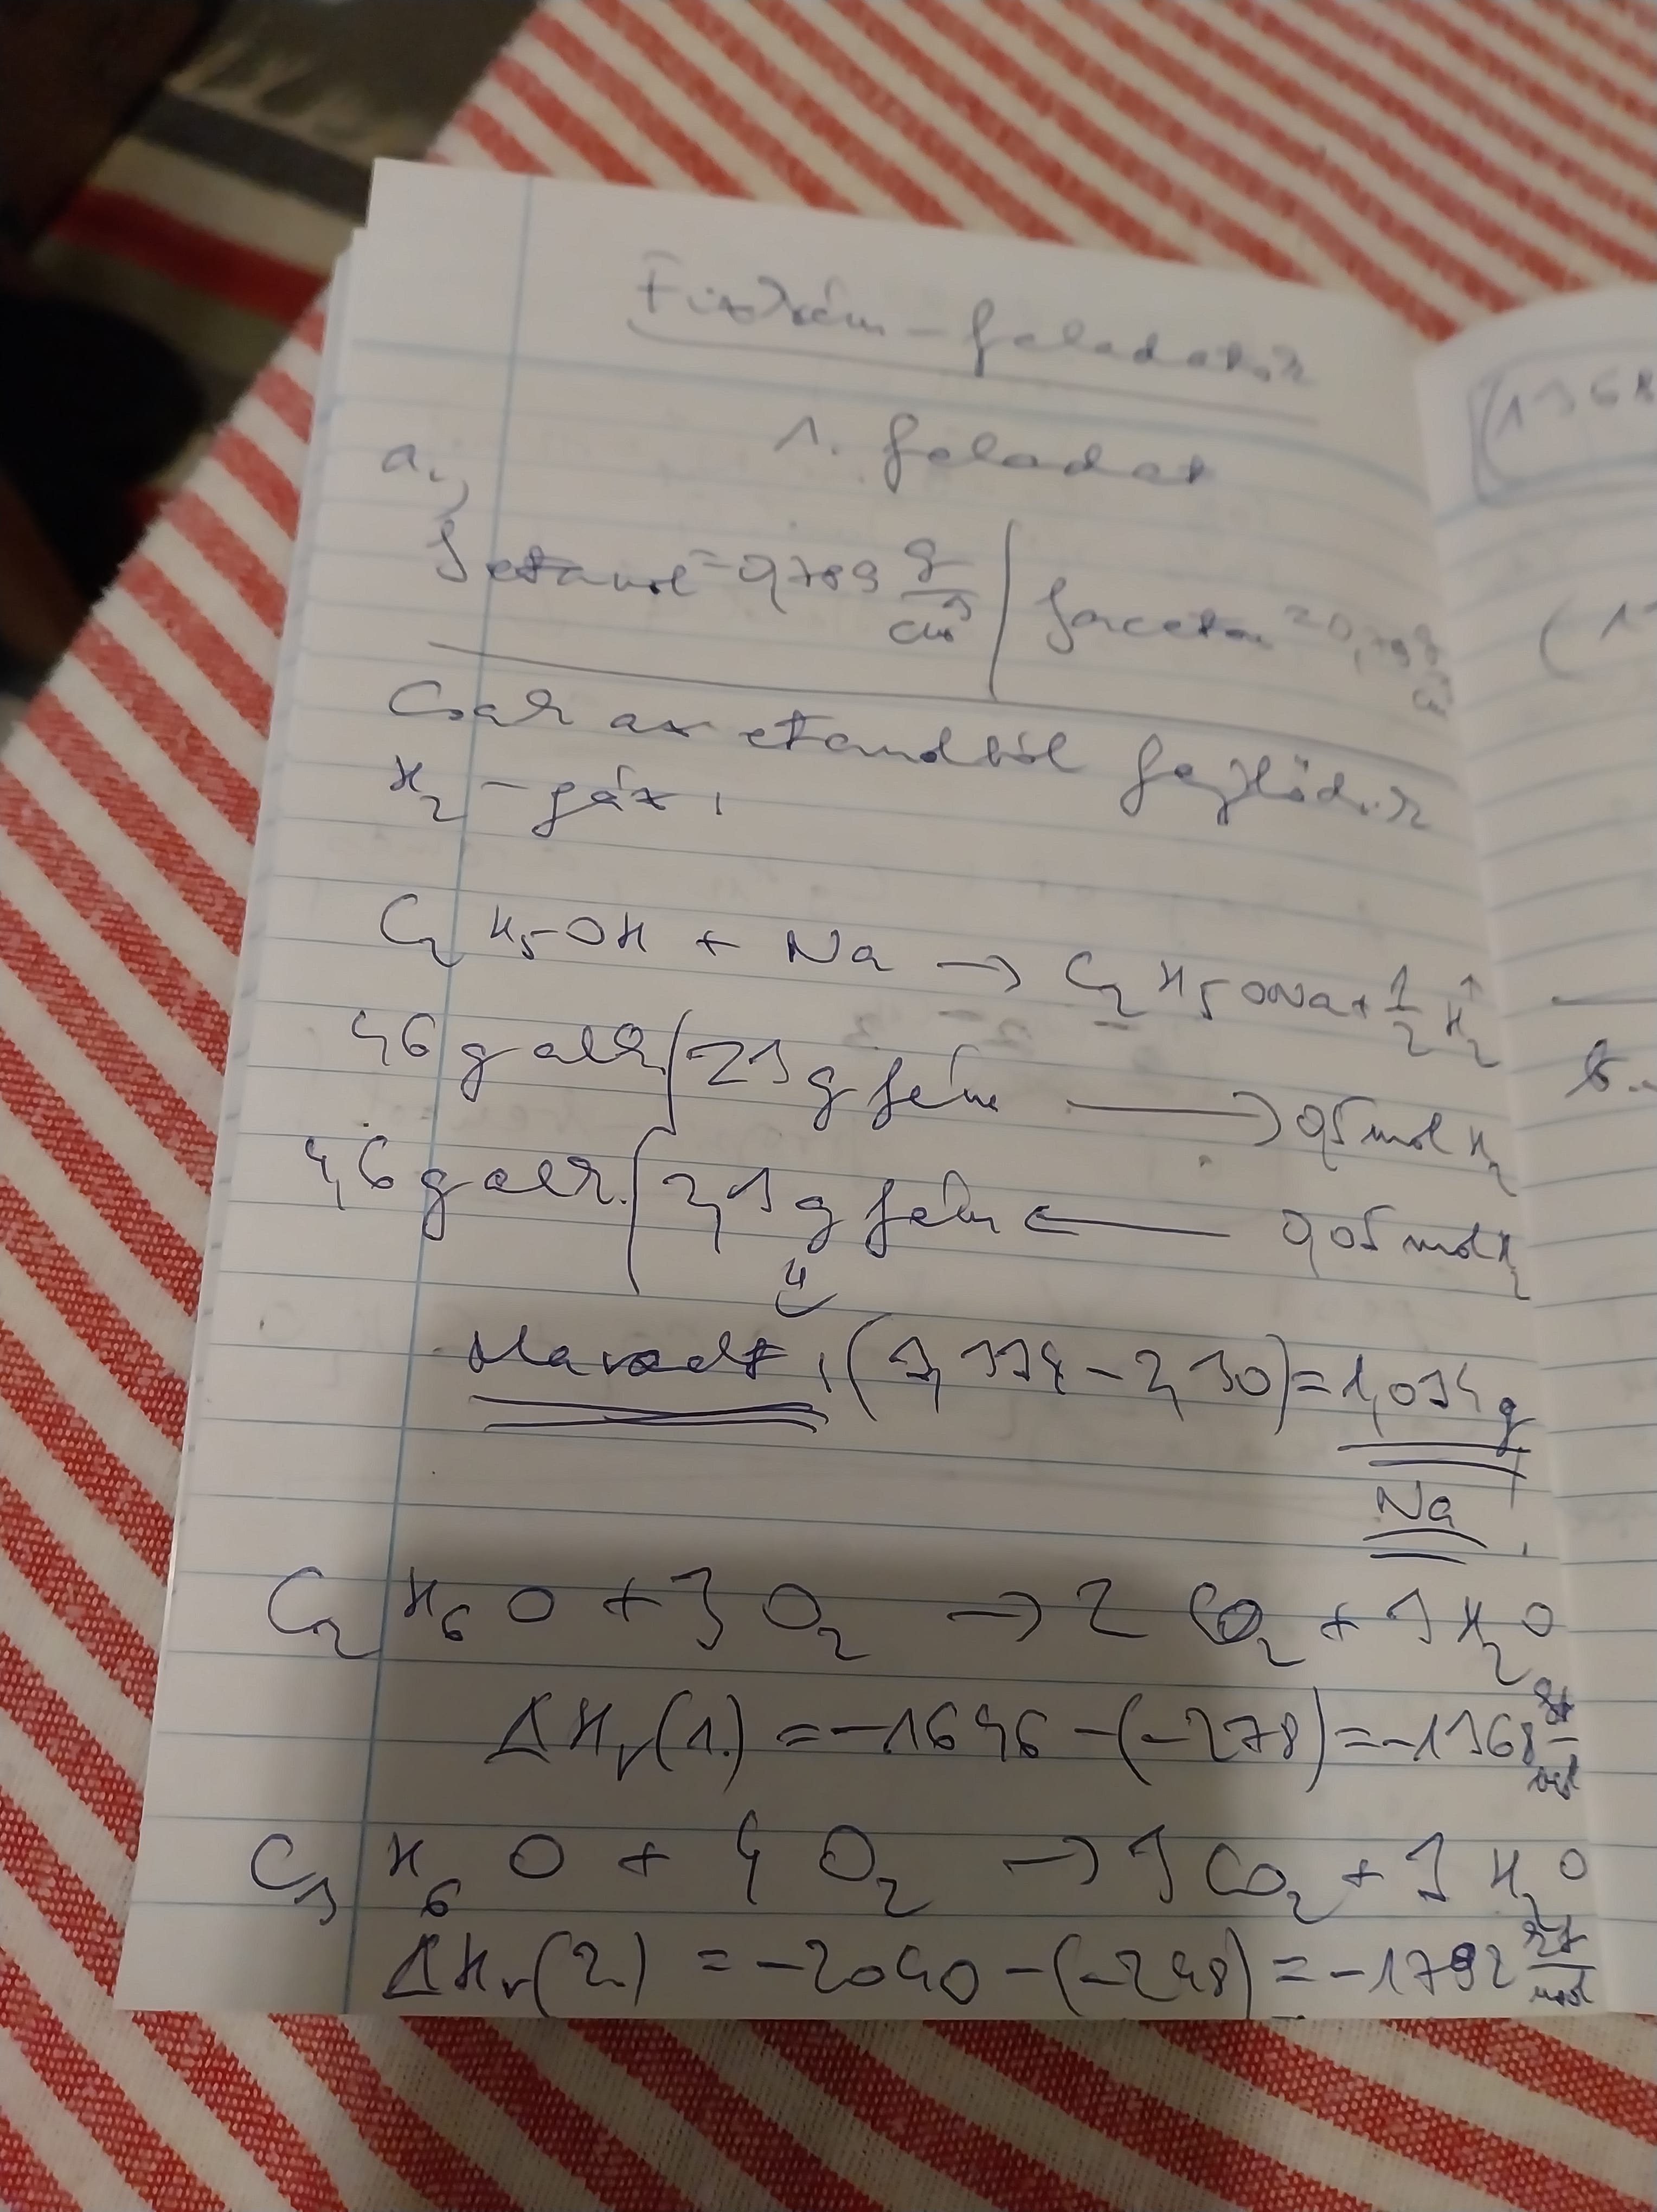 Fizkém-feladatok
1. feladat
a.,
ρetanol = 0,789 g/cm³ | ρaceton = 0,79 g/cm³
Csak az etanolból fejlődik
H₂ - gáz,
C₂H₅-OH + Na → C₂H₅ONa + 1/2 H₂↑
46 g alk. | 23 g fém → 0,5 mol H₂
4,6 g alk. | 2,3 g fém ← 0,05 mol H₂
⇓
Maradt, (3,334 - 2,30) = 1,034 g
Na
C₂H₆O + 3 O₂ → 2 CO₂ + 3 H₂O
ΔHr(1.) = -1646 - (-278) = -1368 kJ/mol
C₃H₆O + 4 O₂ → 3 CO₂ + 3 H₂O
ΔHr(2.) = -2040 - (-248) = -1792 kJ/mol
(1368
(1
b.